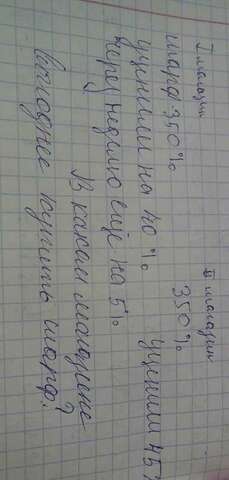 I магазин II магазин
шарф 350% 350%
уценили на 40% уценили 45%
через неделю еще на 5%
В каком магазине
выгоднее купить шарф?